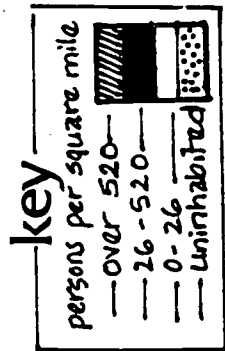 key
persons per square mile
over 520
26-520
0-26
uninhabited